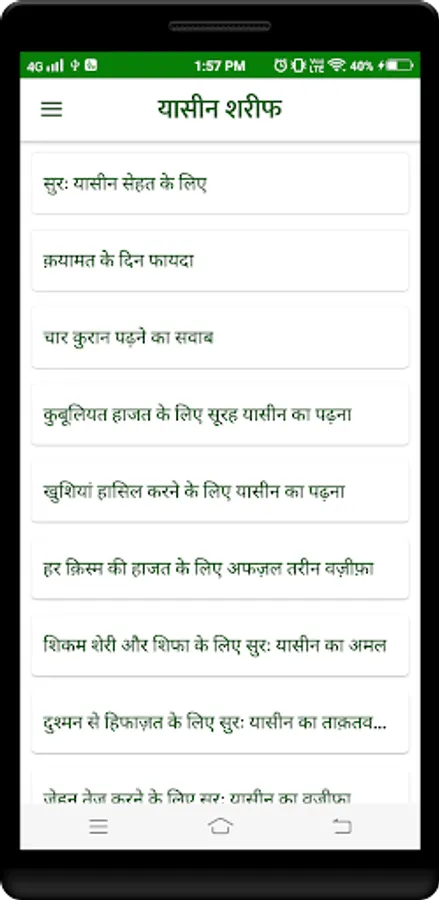 4G 1:57 PM VoLTE 40%
यासीन शरीफ
सुरः यासीन सेहत के लिए
क़यामत के दिन फायदा
चार कुरान पढ़ने का सवाब
कुबूलियत हाजत के लिए सूरह यासीन का पढ़ना
खुशियां हासिल करने के लिए यासीन का पढ़ना
हर क़िस्म की हाजत के लिए अफज़ल तरीन वज़ीफ़ा
शिकम शेरी और शिफा के लिए सुरः यासीन का अमल
दुश्मन से हिफाज़त के लिए सुरः यासीन का ताक़तव...
जेहन तेज़ करने के लिए सुरः यासीन का वज़ीफ़ा